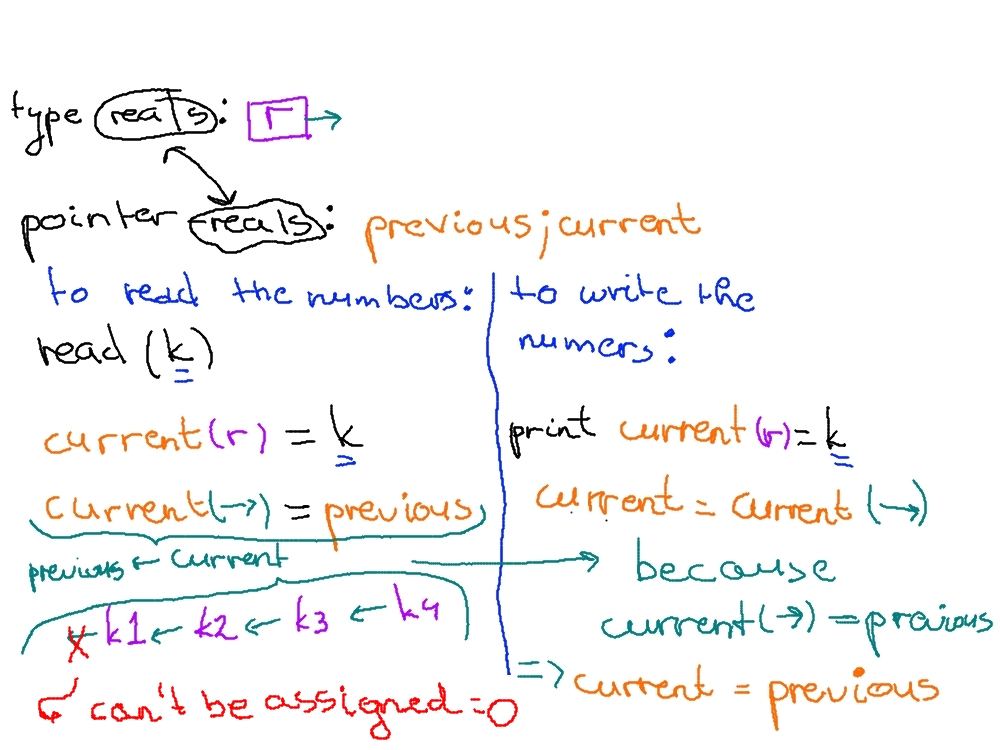 type reals: r →
pointer reals: previous; current
to read the numbers:
read (k)
current(r) = k
current(→) = previous
previous ← current
← k1 ← k2 ← k3 ← k4
can't be assigned = 0
to write the
numers:
print current(r) = k
current = current (→)
because
current(→) = previous
=> current = previous